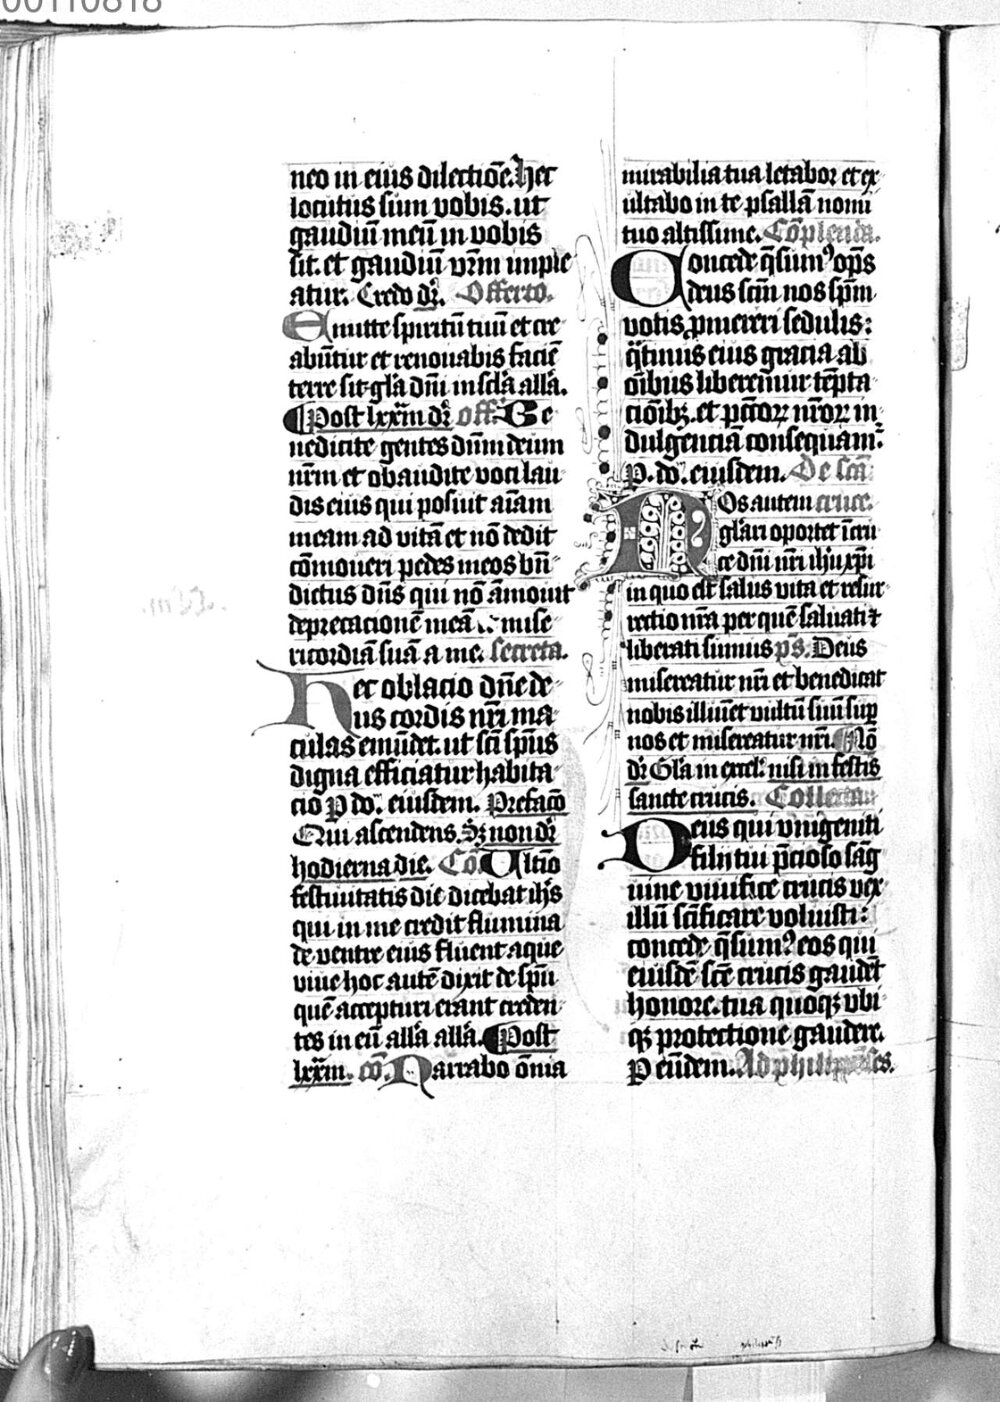 00110818
neo in eius dilectiōe. Hec
locutus sum vobis. ut
gaudiū meū in vobis
sit. et gaudiū vr̄m imple
atur. Credo dr̄. Offerto.
Emitte spiritū tuū et cre
abūtur et renouabis faciē
terre sit gla dn̄i in scla alla.
Post lxxm̄ dr̄ off. Be
nedicite gentes dn̄m deum
nr̄m et obaudite voci lau
dis eius qui posuit aīam
meam ad vitā et nō dedit
cōmoueri pedes meos bn̄
dictus dn̄s qui nō āmouit
deprecacionē meā mise
ricordiā suā a me. Secreta.
Hec oblacio dn̄e de
us cordis nr̄i ma
culas emūdet. ut sci sp̄us
digna efficiatur habita
cio P do. eiusdem. Prefacō
Qui ascendens. Sz non dr̄
hodierna die. Cō. Ultio
festiuitatis die dicebat ih̄s
qui in me credit flumina
de ventre eius fluent aque
viue hoc autē dixit de sp̄u
quē accepturi erant creden
tes in eū alla alla. Post
lxxm̄. cō. Narrabo ōmia
mirabilia tua letabor et ex
ultabo in te psallā nomi
tuo altissime. Cōplenda.
Concede q̄sum9 op̄s
deus scm̄ nos sp̄m
votis p̄mereri sedulis:
q̄tinus eius gracia ab
oībus liberemur tēpta
ciōibz. et pc̄toꝝ nr̄oꝝ in
dulgenciā consequam:
P. do. eiusdem. De scā
Nos autem cruce.
glari oportet ī cru
ce dn̄i nr̄i ih̄u xp̄i
in quo est salus vita et resur
rectio nr̄a per quē saluati et
liberati sumus ps. Deus
misereatur nr̄i et benedicat
nobis illumet vultū suū sup
nos et misereatur nr̄i. Nō
dr̄ Gla in excel. nisi in festis
sancte crucis. Collecta
Deus qui vnigeniti
filij tui p̄cioso sāg
uine viuifice crucis vex
illū scīficare voluisti:
concede q̄sum9 eos qui
eiusdē scē crucis gaudēt
honore. tua quoqz vbi
qz protectione gaudere.
P eūdem. Ad philippēses.